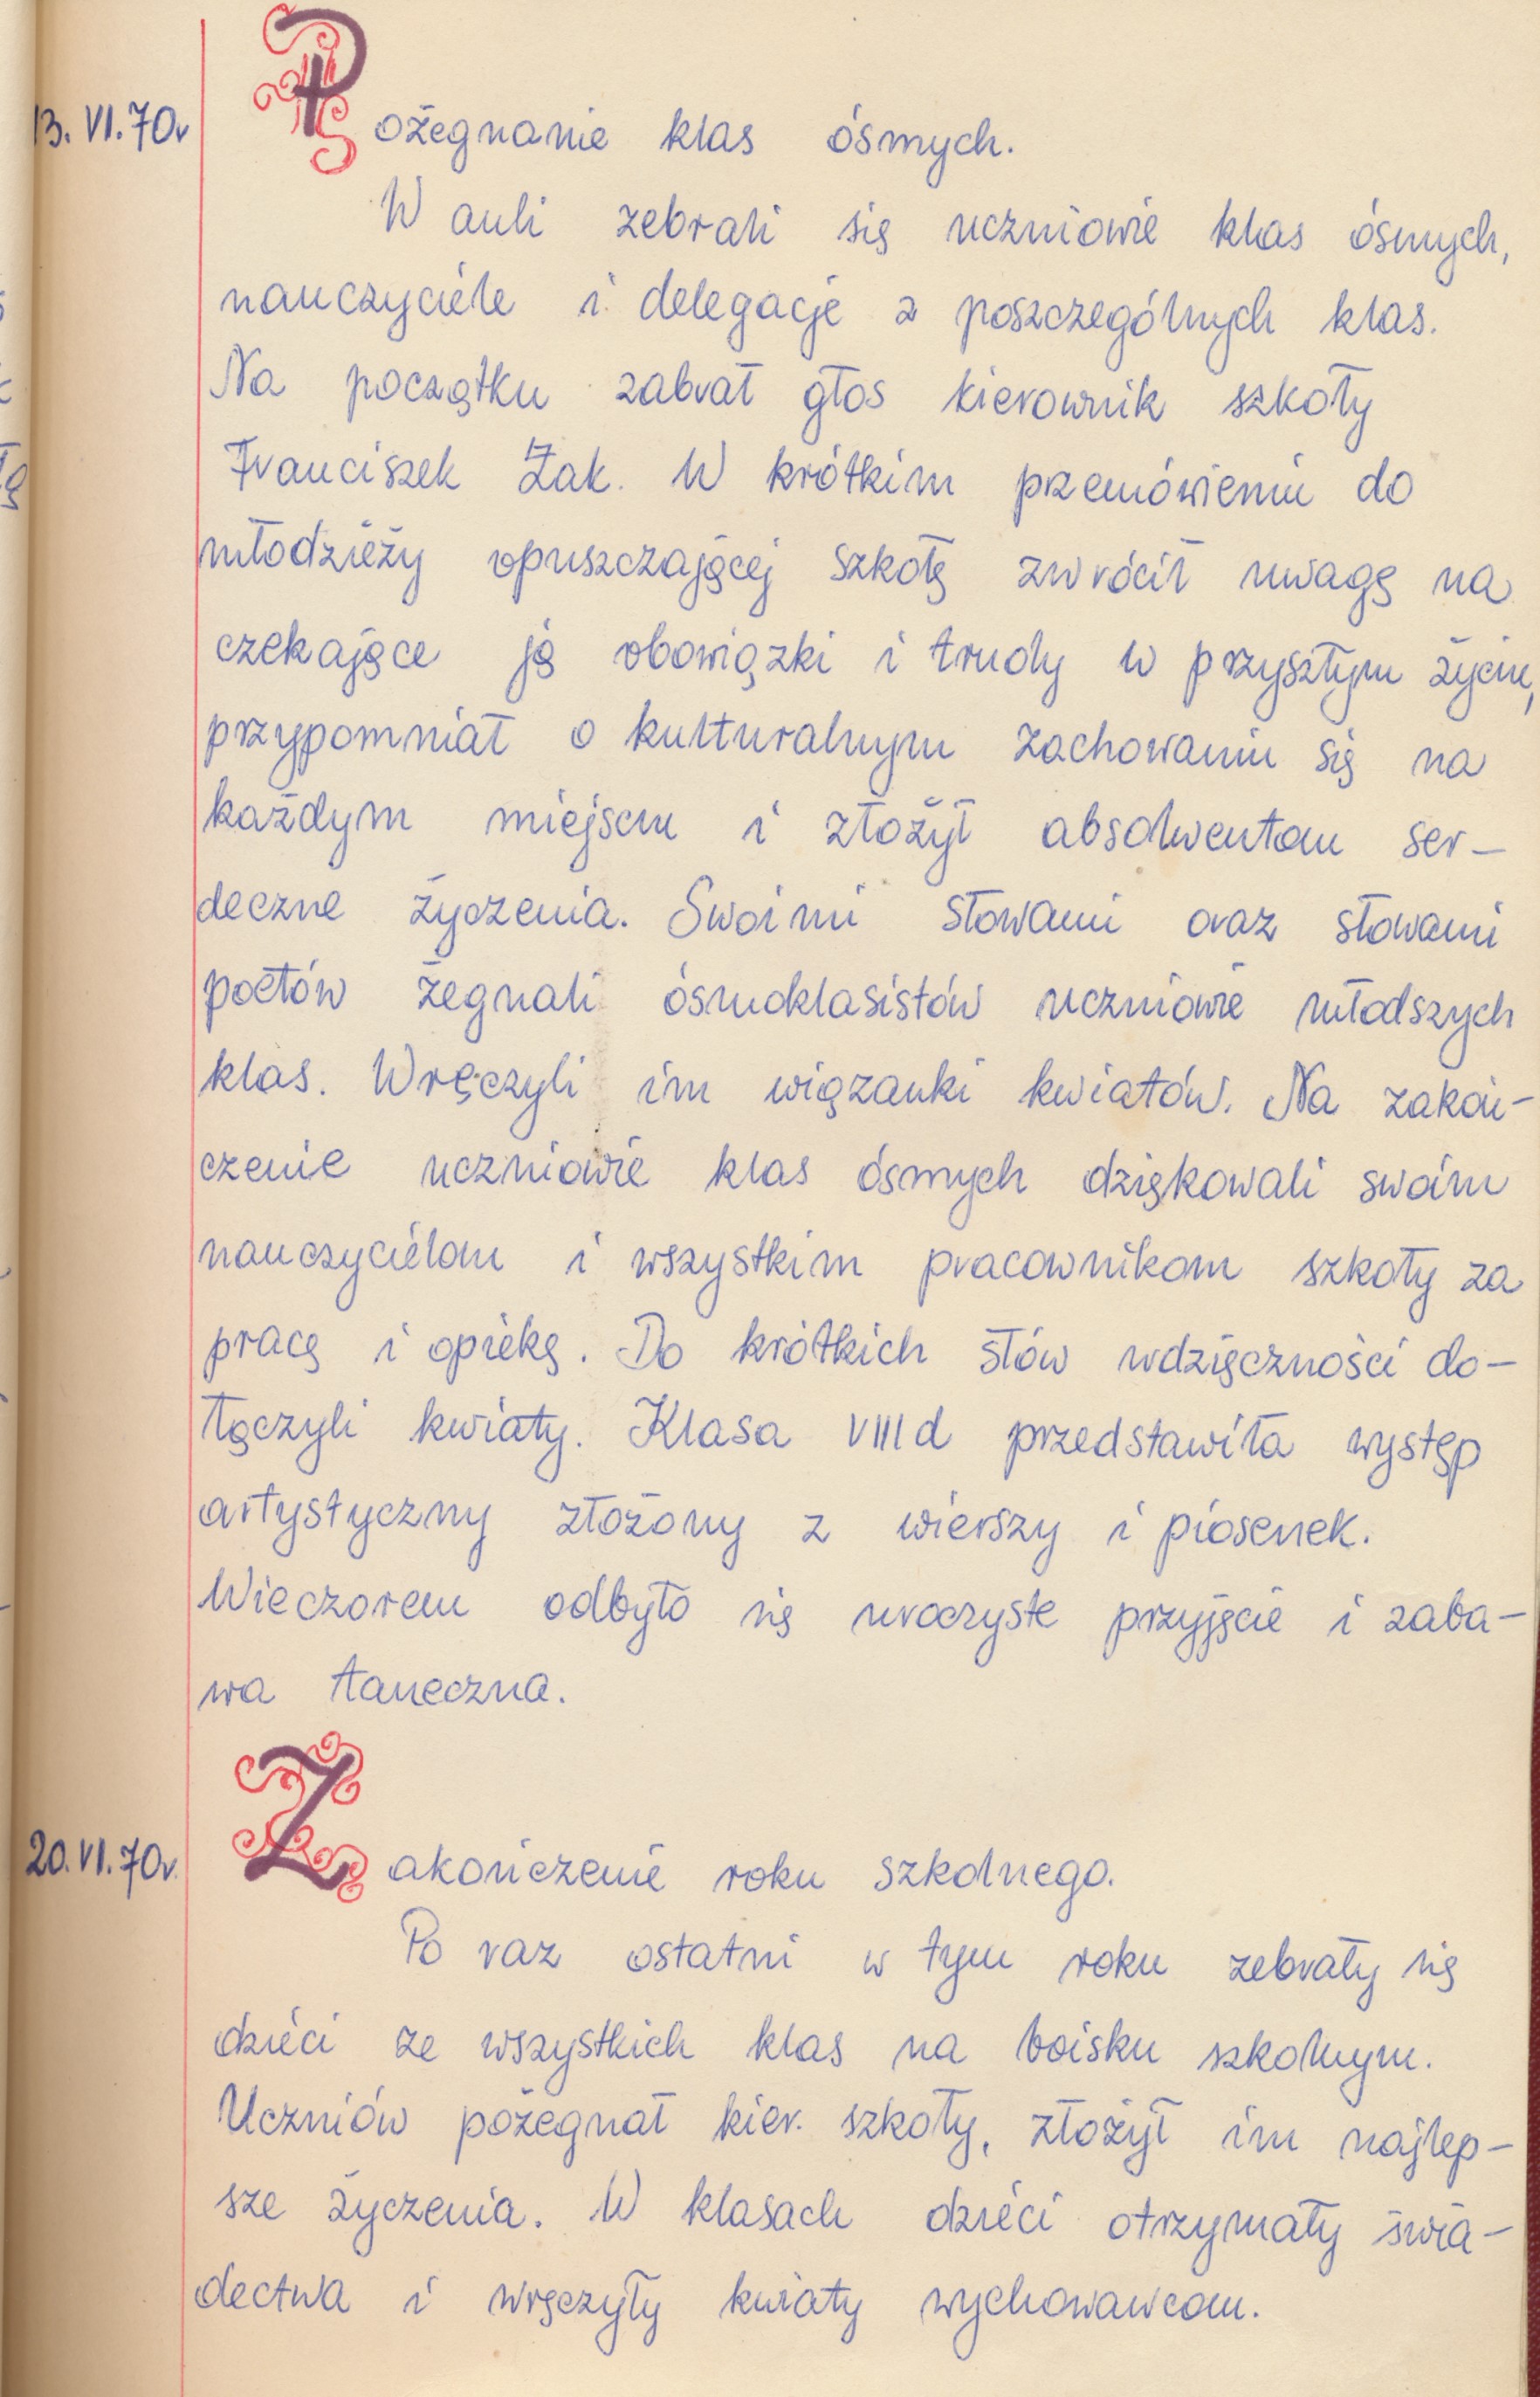 13. VI. 70r
Pożegnanie klas ósmych.
W auli zebrali się uczniowie klas ósmych,
nauczyciele i delegacje z poszczególnych klas.
Na początku zabrał głos kierownik szkoły
Franciszek Żak. W krótkim przemówieniu do
młodzieży opuszczającej szkołę zwrócił uwagę na
czekające ją obowiązki i trudy w przyszłym życiu,
przypomniał o kulturalnym zachowaniu się na
każdym miejscu i złożył absolwentom ser-
deczne życzenia. Swoimi słowami oraz słowami
poetów żegnali ósmoklasistów uczniowie młodszych
klas. Wręczyli im wiązanki kwiatów. Na zakoń-
czenie uczniowie klas ósmych dziękowali swoim
nauczycielom i wszystkim pracownikom szkoły za
pracę i opiekę. Do krótkich słów wdzięczności do-
łączyli kwiaty. Klasa VIII d przedstawiła występ
artystyczny złożony z wierszy i piosenek.
Wieczorem odbyło się uroczyste przyjęcie i zaba-
wa taneczna.
20. VI. 70r.
Zakończenie roku szkolnego.
Po raz ostatni w tym roku zebrały się
dzieci ze wszystkich klas na boisku szkolnym.
Uczniów pożegnał kier. szkoły, złożył im najlep-
sze życzenia. W klasach dzieci otrzymały świa-
dectwa i wręczyły kwiaty wychowawcom.